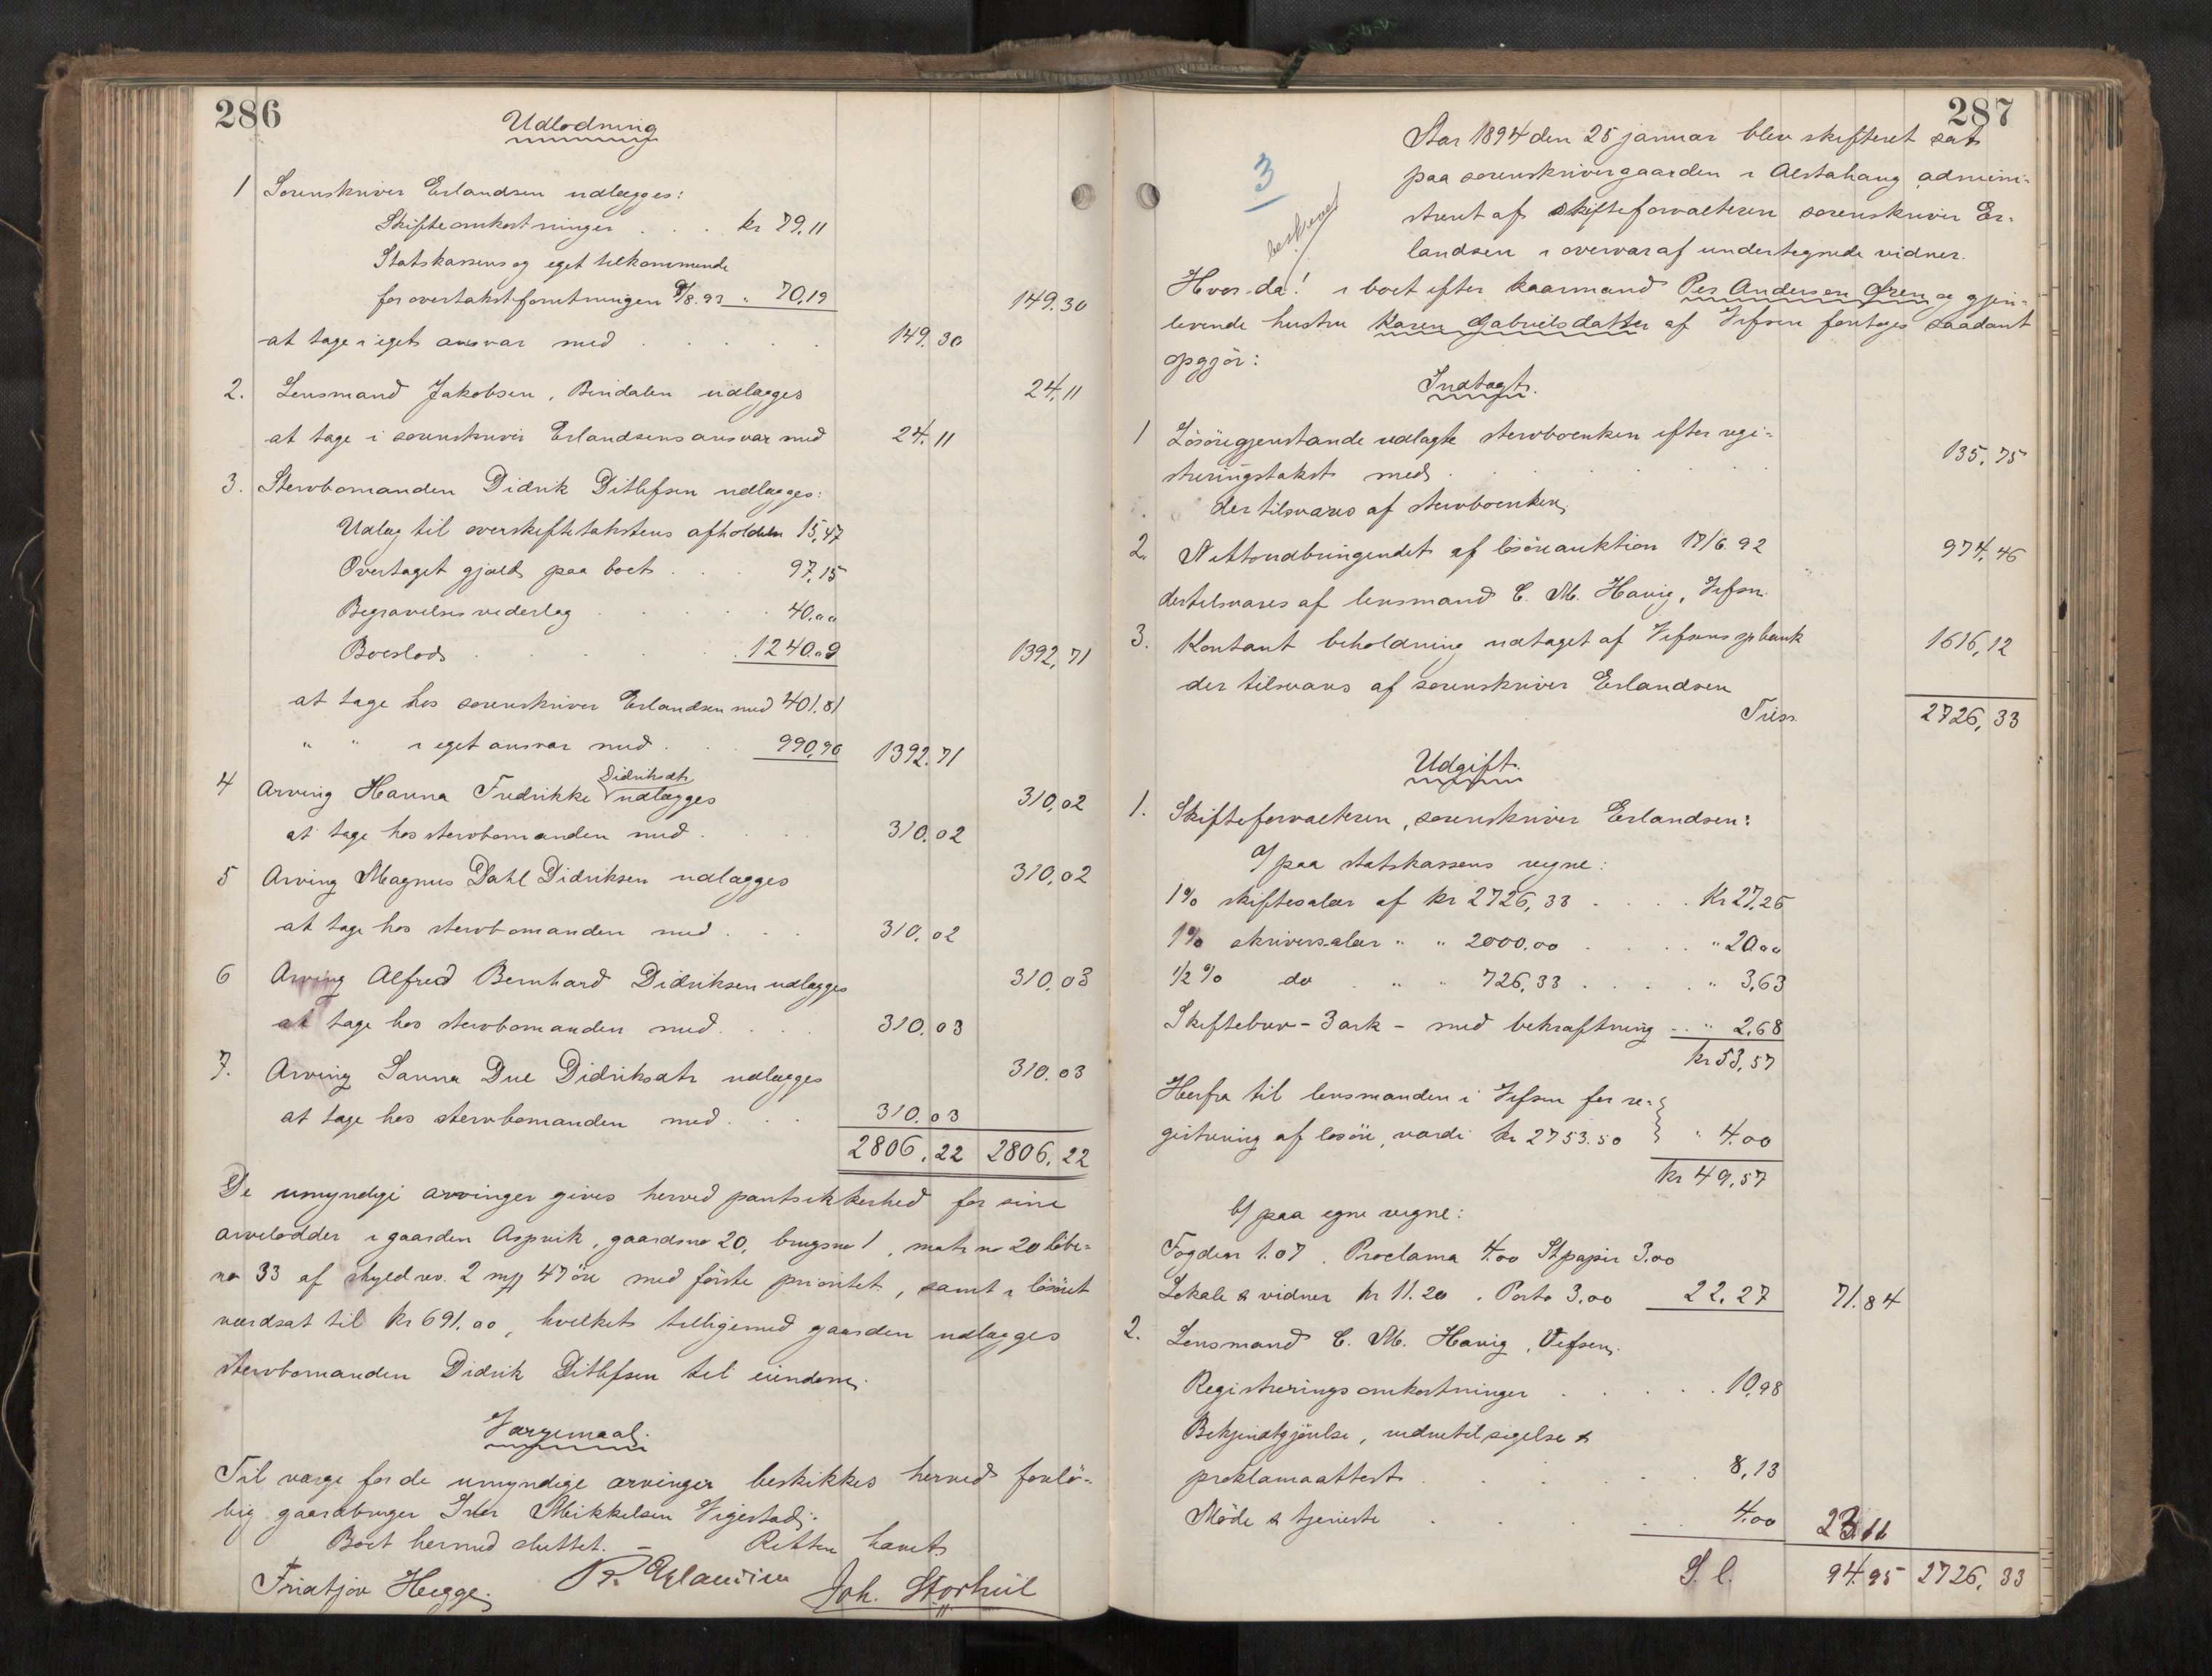 286
Udlodning
1 Sorenskriver Erlandsen udlægges:
Skifteomkostninger . . . kr 79,11
Statskassens og eget tilkommende
for overtakstforretningen 9/8.93 " 70,19 149.30
at tage i eget ansvar med . . . . . 149.30
2. Lensmand Jakobsen, Bindalen udlægges 24,11
at tage i sorenskriver Erlandsens ansvar med 24.11
3. Stervbomanden Didrik Ditlefsen udlægges:
Udlæg til overskiftetakstens afholdelse 15,47
Overtaget gjæld paa boet . . . 97,15
Begravelsesvederlag . . . . . 40.00
Boeslod . . . . . . 1240.09 1392,71
at tage hos sorenskriver Erlandsen med 401.81
" " i eget ansvar med . . . 990,90 1392.71
4 Arving Hanna Fredrikke Didriksdtr udlægges 310,02
at tage hos stervbomanden med . . . . 310.02
5 Arving Magnus Dahl Didriksen udlægges 310,02
at tage hos stervbomanden med . . . 310.02
6 Arving Alfred Bernhard Didriksen udlægges 310.03
at tage hos stervbomanden med . . . . 310.03
7. Arving Sanna Due Didriksdtr udlægges 310.03
at tage hos stervbomanden med . . . 310.03
2806,22 2806.22
De umyndige arvinger gives herved pantsikkerhed for sine
arvelodder i gaarden Aspvik, gaardsno 20, brugsno 1, matr no 20 løbe-
no 33 af skyld rev. 2 mf 47 öre med förste prioritet, samt i lösöret
værdsat til kr 691.00, hvilket tilligemed gaarden udlægges
stervbomanden Didrik Ditlefsen til eiendom.
Værgemaal.
Til værge for de umyndige arvinger beskikkes herved forelö-
big gaardbruger Iver Mikkelsen Vigestad.
Boet hermed sluttet. – Retten hævet
Fridtjov Hegge. P. Erlandsen Joh. Storhiil
287
3
beskrevet
Aar 1894 den 25 januar blev skifteret sat
paa sorenskrivergaarden i Alstahaug admini-
streret af skifteforvalteren sorenskriver Er-
landsen i overvær af undertegnede vidner.
Hvor da! i boet efter kaarmand Per Andersen Øren og gjen-
levende hustru Karen Gabrielsdatter af Vefsen foretoges saadant
opgjör:
Indtægt.
1 Lösöregjenstande udlagte stervboenken efter regi-
streringstakst med . . . . . . 135,75
der tilsvares af stervboenken
2. Nettoudbringendet af lösöreauktion 17/6.92 974.46
der tilsvares af lensmand C. M. Havig, Vefsn.
3. Kontant beholdning udtaget af Vefsens spbank 1616,12
der tilsvares af sorenskriver Erlandsen
Tilss. 2726,33
Udgift.
1. Skifteforvalteren, sorenskriver Erlandsen:
a/ paa statskassens vegne:
1% skiftesalær af kr 2726,33 . . . . Kr 27,26
1% skriversalær " " 2000.00 . . . . " 20.00
1/2% do " " 726,33 . . . . " 3,63
Skiftebrev – 3 ark – med bekræftning . . " 2,68
kr 53,57
Herfra til lensmanden i Vefsen for re-
gistrering af løsöre, værdi kr 2753.50 " 4.00
kr 49,57
b/ paa egne vegne:
Fogden 1.07. Proclama 4.00 Stpapir 3.00
Lokale & vidner kr 11.20. Porto 3,00 22,27 71.84
2. Lensmand C. M. Havig, Vefsen.
Registreringsomkostninger . . . . . 10,98
Bekjendtgjörelse, vidnetilsigelse &
proklamaattest . . . . . 8,13
Möde & tjeneste . . . . . 4.00 23.11
S. l. 94.95 2726,33